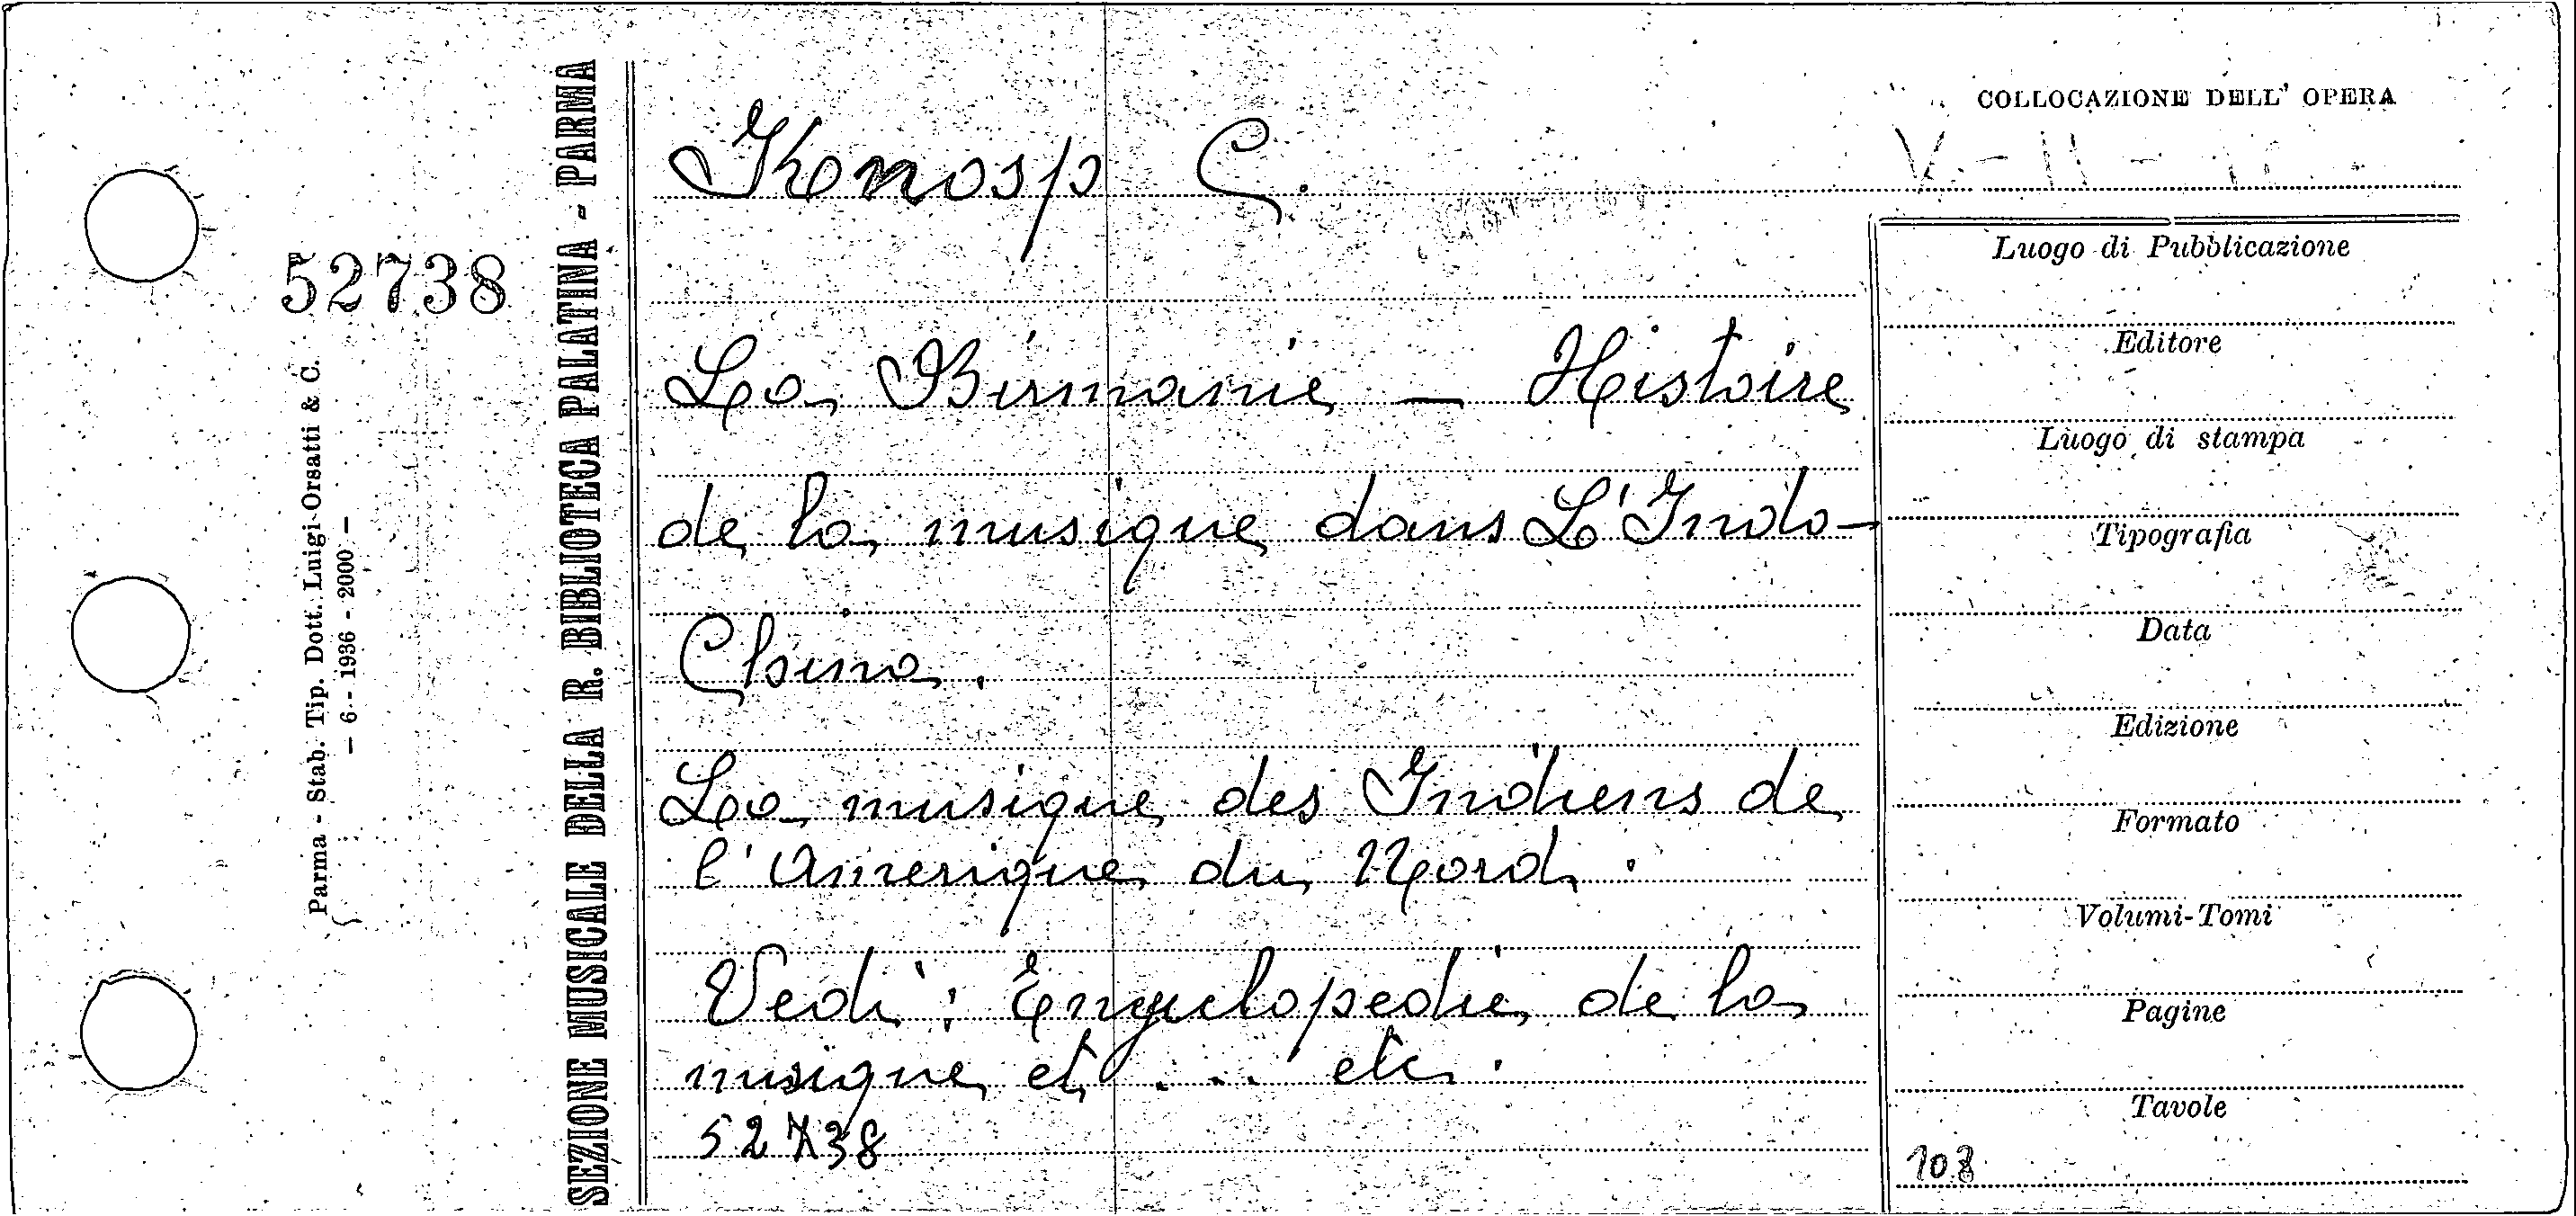 COLLOCAZIONE DELL' OPERA
V - II -
Knosp G.
52738
SEZIONE MUSICALE DELLA R. BIBLIOTECA PALATINA - PARMA
Parma - Stab. Tip. Dott. Luigi Orsatti & C.
- 6 - 1936 - 2000 -
La Birmanie - Histoire
de la musique dans L'Indo-
China.
La musique des Indiens de
l'Amerique du Nord.
Vedi: Encyclopedie de la
musique et ... etc.
52738
Luogo di Pubblicazione
Editore
Luogo di stampa
Tipografia
Data
Edizione
Formato
Volumi-Tomi
Pagine
Tavole
108